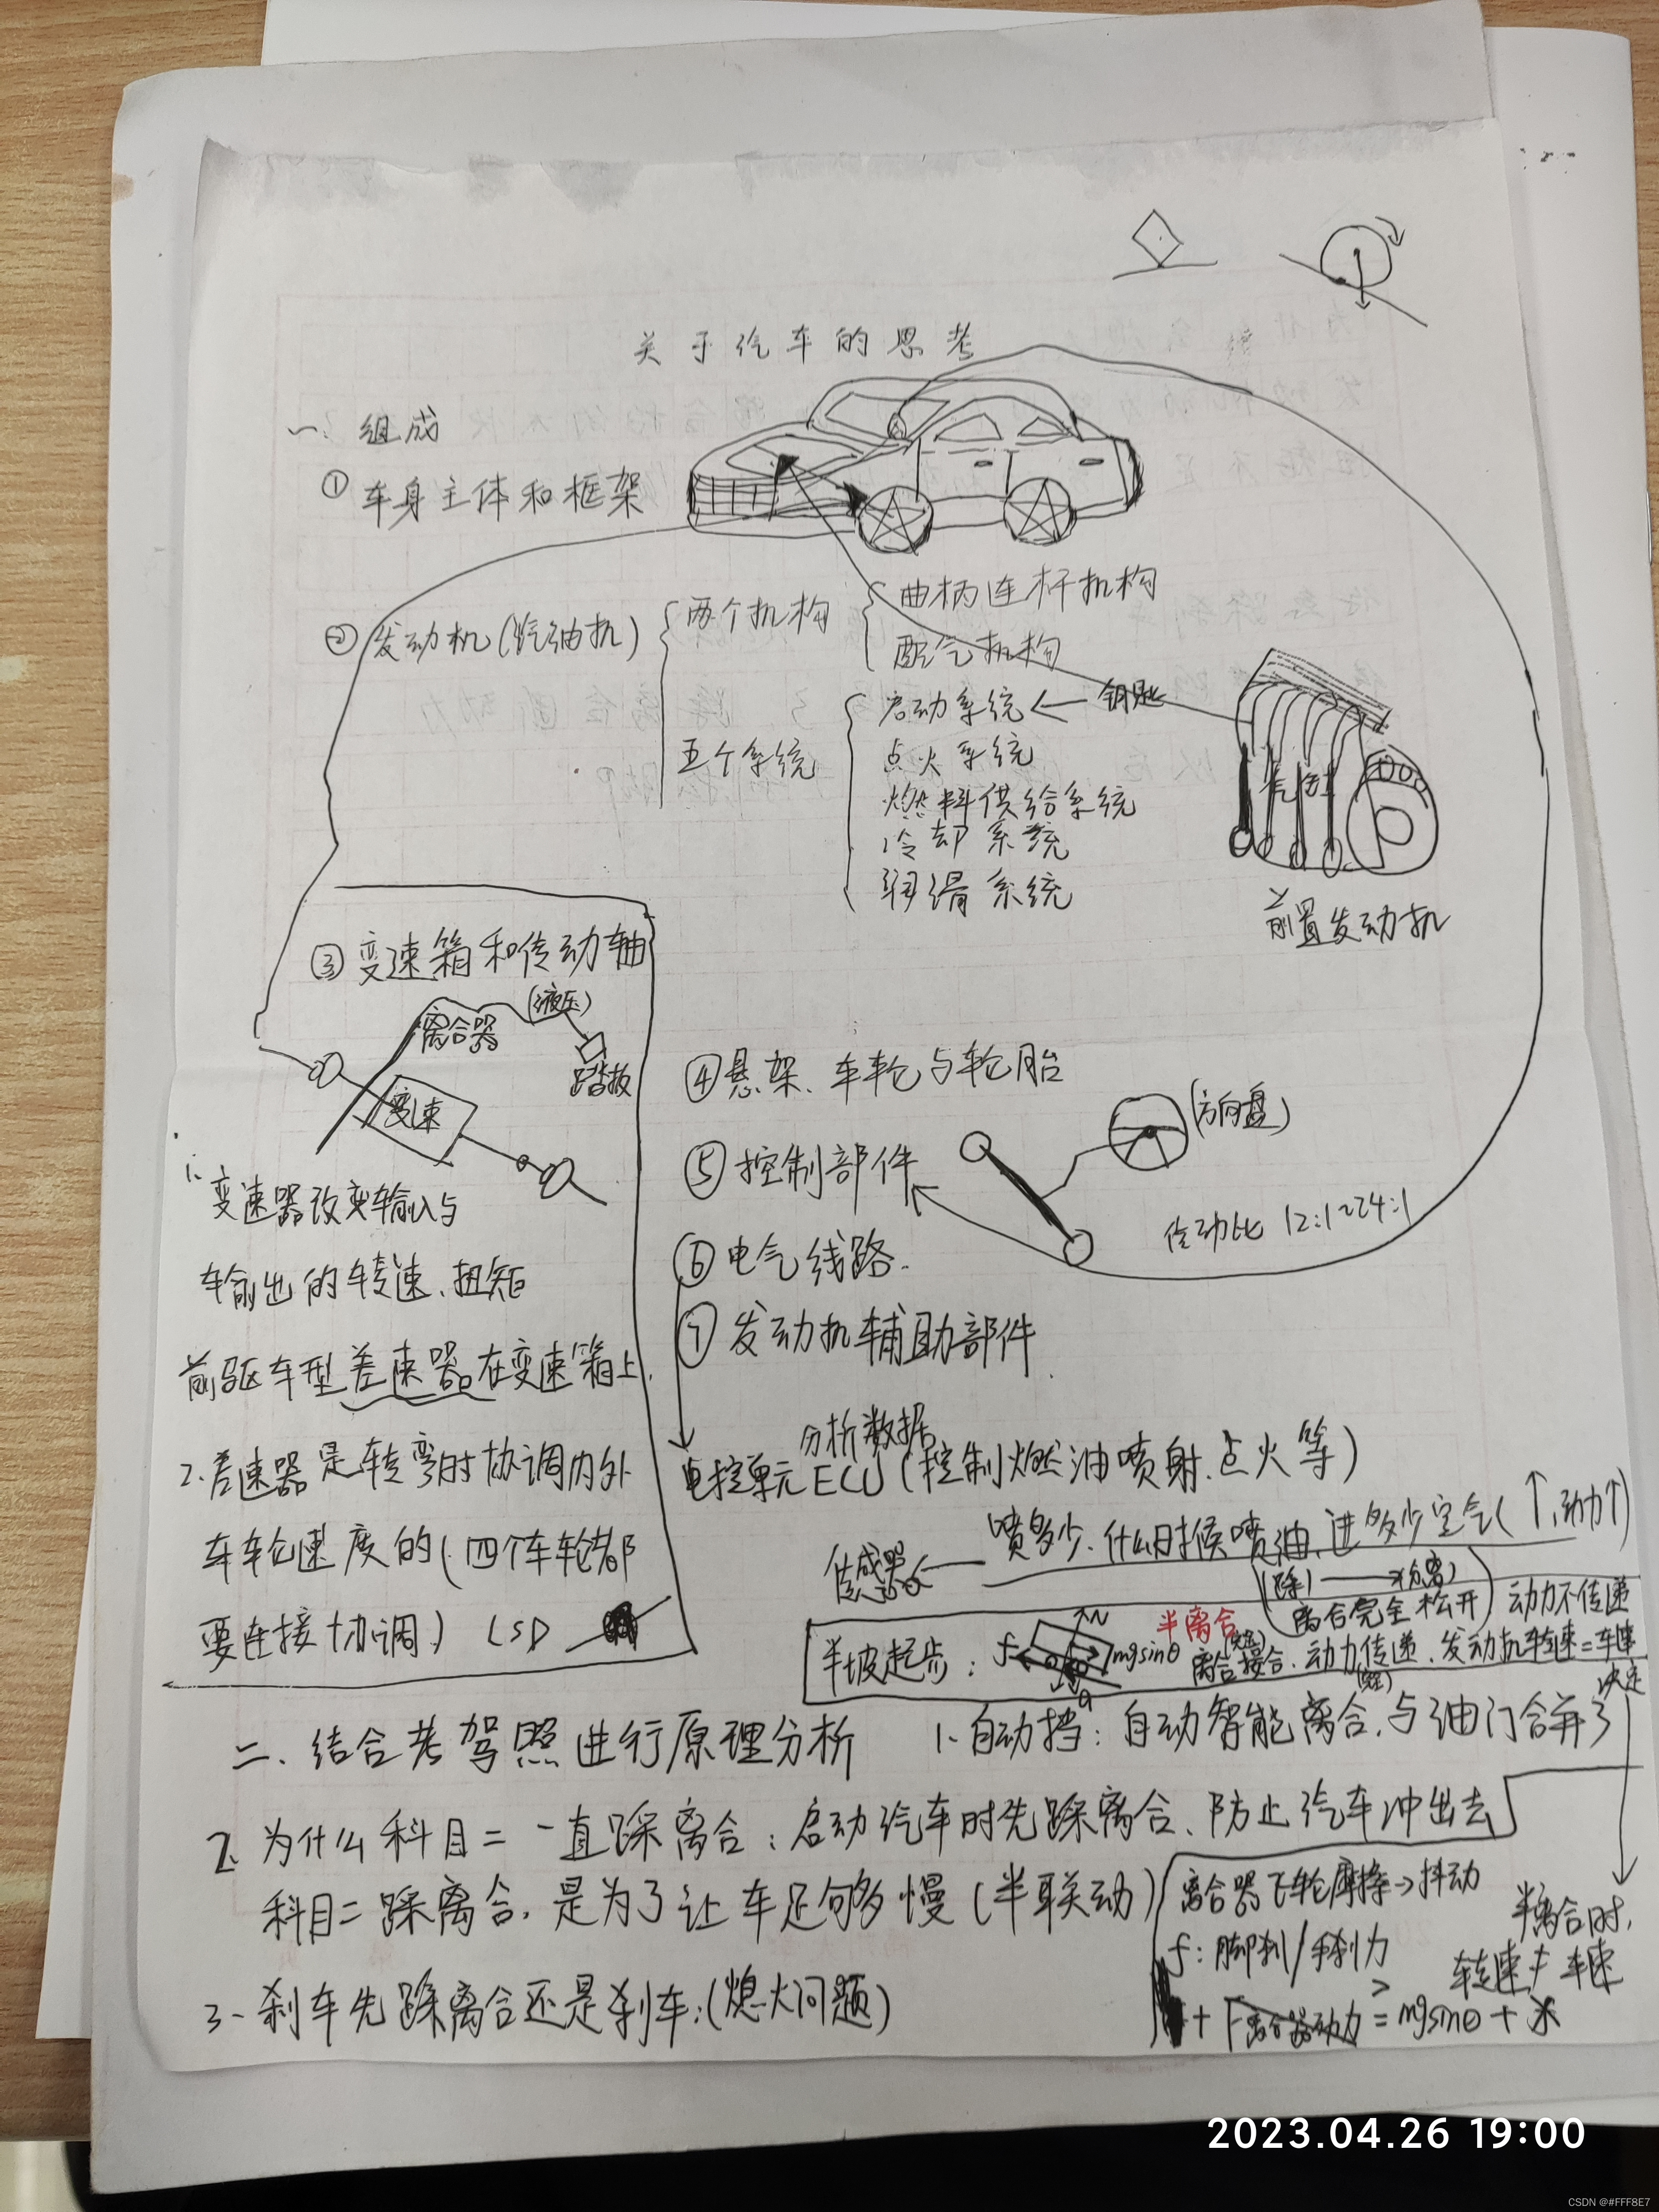 关于汽车的思考
一、组成
①车身主体和框架
②发动机(汽油机)
两个机构
曲柄连杆机构
配气机构
五个系统
启动系统 ← 钥匙
点火系统
燃料供给系统
冷却系统
润滑系统
气缸
前置发动机
③变速箱和传动轴
离合器
(液压)
踏板
变速
1. 变速器改变输入与
输出的转速、扭矩
前驱车型差速器在变速箱上.
2.差速器是转弯时协调内外
车轮速度的(四个车轮都
要连接协调)
④悬架、车轮与轮胎
⑤控制部件
(方向盘)
传动比 12:1~24:1
⑥电气线路.
⑦发动机辅助部件
分析数据
电控单元ECU(控制燃油喷射.点火等)
传感器 ← 喷多少.什么时候喷油.进多少空气(↑,动力↑)
半坡起步: f N mgsinθ
半离合
离合完全松开) 动力不传递
离合接合.动力传递.发动机转速=车速
决定
二、结合考驾照进行原理分析
1.自动挡:自动智能离合.与油门合并了
2.为什么科目二一直踩离合:启动汽车时先踩离合、防止汽车冲出去
科目二踩离合.是为了让车足够慢(半联动)
离合器飞轮摩擦→抖动
f:脚刹/手刹力
+F离合器动力 ≥ mgsinθ+
半离合时,
转速≠车速
3.刹车先踩离合还是刹车:(熄火问题)
2023.04.26 19:00
CSDN @#FFF8E7